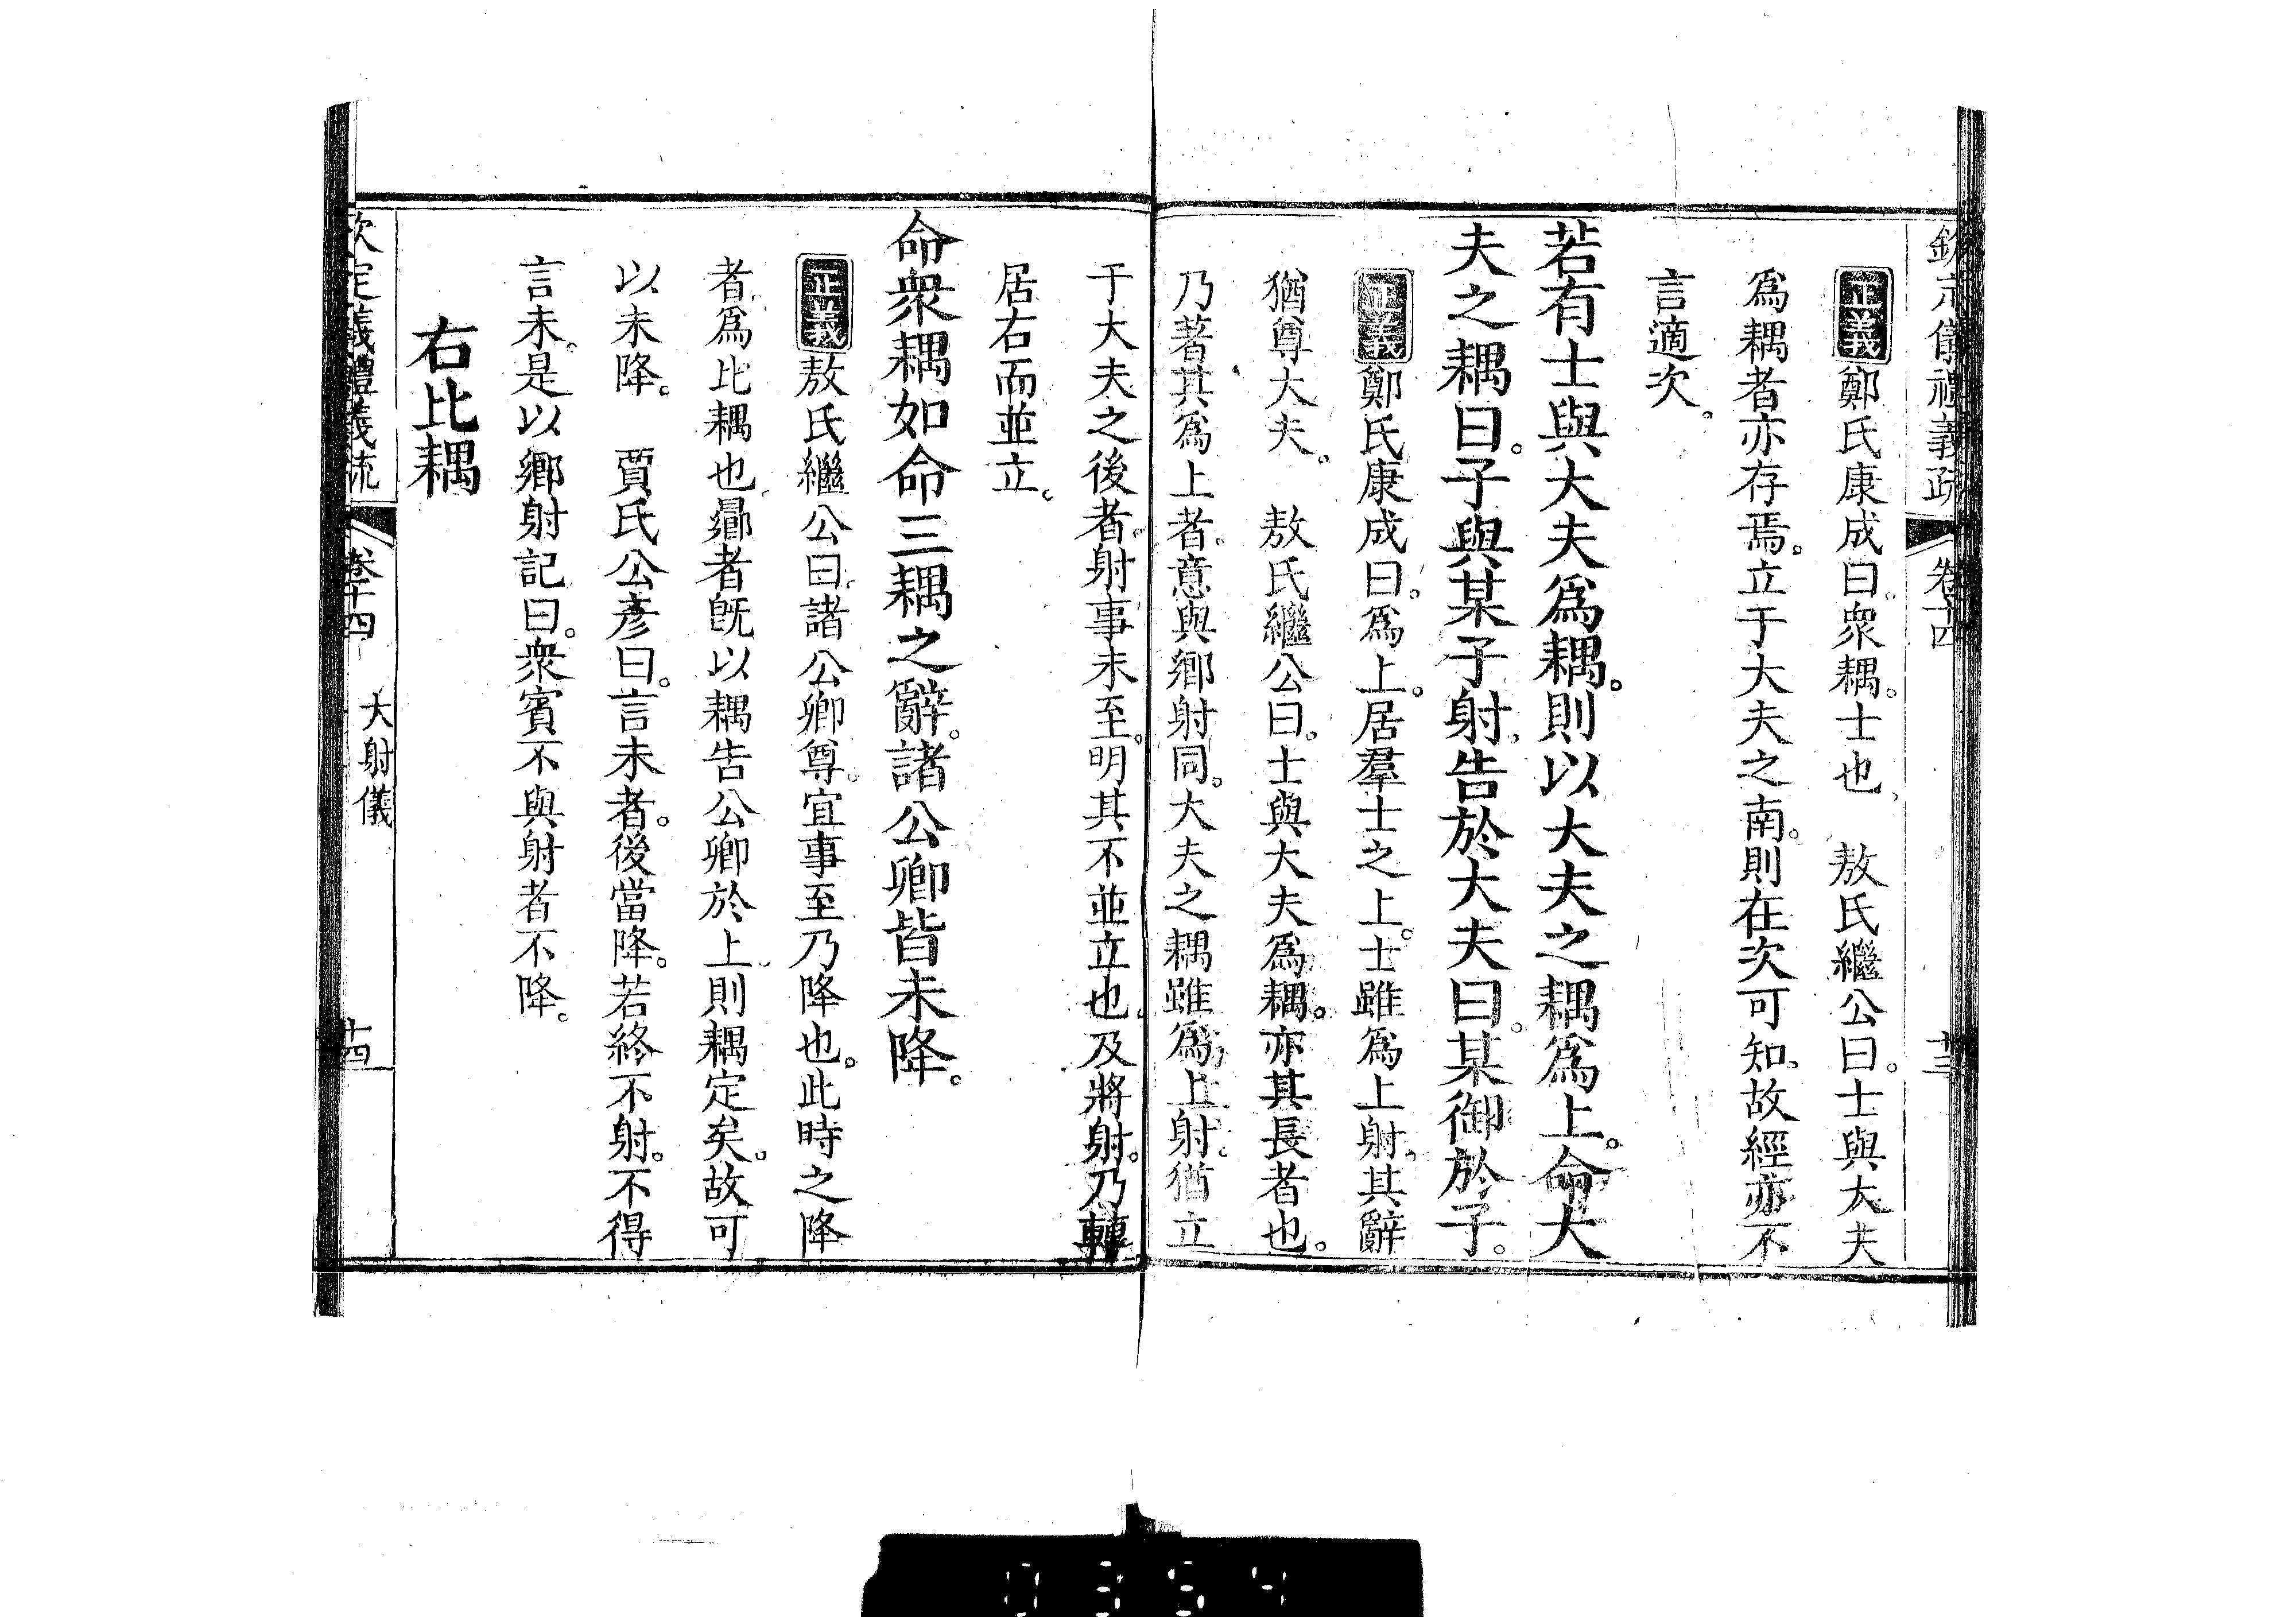 欽定儀禮義疏 卷十四 十三
正義鄭氏康成曰。衆耦。士也。 敖氏繼公曰。士與大夫
爲耦者亦存焉。立于大夫之南。則在次可知。故經亦不
言適次。
若有士與大夫爲耦。則以大夫之耦爲上。命大
夫之耦曰。子與某子射。告於大夫曰。某御於子。
正義鄭氏康成曰。爲上。居羣士之上。士雖爲上射。其辭
猶尊大夫。 敖氏繼公曰。士與大夫爲耦。亦其長者也。
乃著其爲上者。意與鄉射同。大夫之耦雖爲上射。猶立
于大夫之後者。射事未至。明其不並立也。及將射。乃轉
居右而並立。
命衆耦如命三耦之辭。諸公卿皆未降。
正義敖氏繼公曰。諸公卿尊。宜事至乃降也。此時之降
者。爲比耦也。曏者旣以耦告公卿於上。則耦定矣。故可
以未降。 賈氏公彥曰。言未者。後當降。若終不射。不得
言未。是以鄉射記曰。衆賓不與射者不降。
右比耦
欽定儀禮義疏 卷十四 大射儀 十四
0354